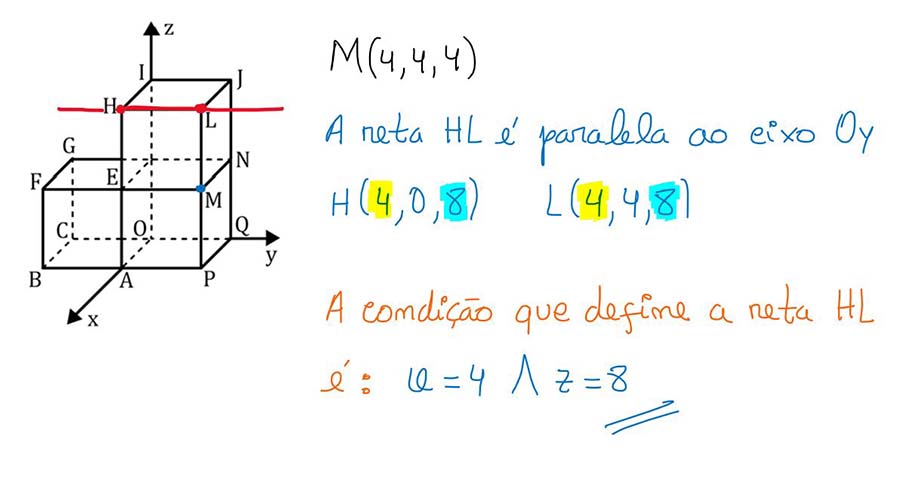 z
I
J
H
L
G
F
E
N
M
C
O
Q
y
B
A
P
x
M(4,4,4)
A reta HL é paralela ao eixo Oy
H(4,0,8) L(4,4,8)
A condição que define a reta HL
é: x=4 ∧ z=8